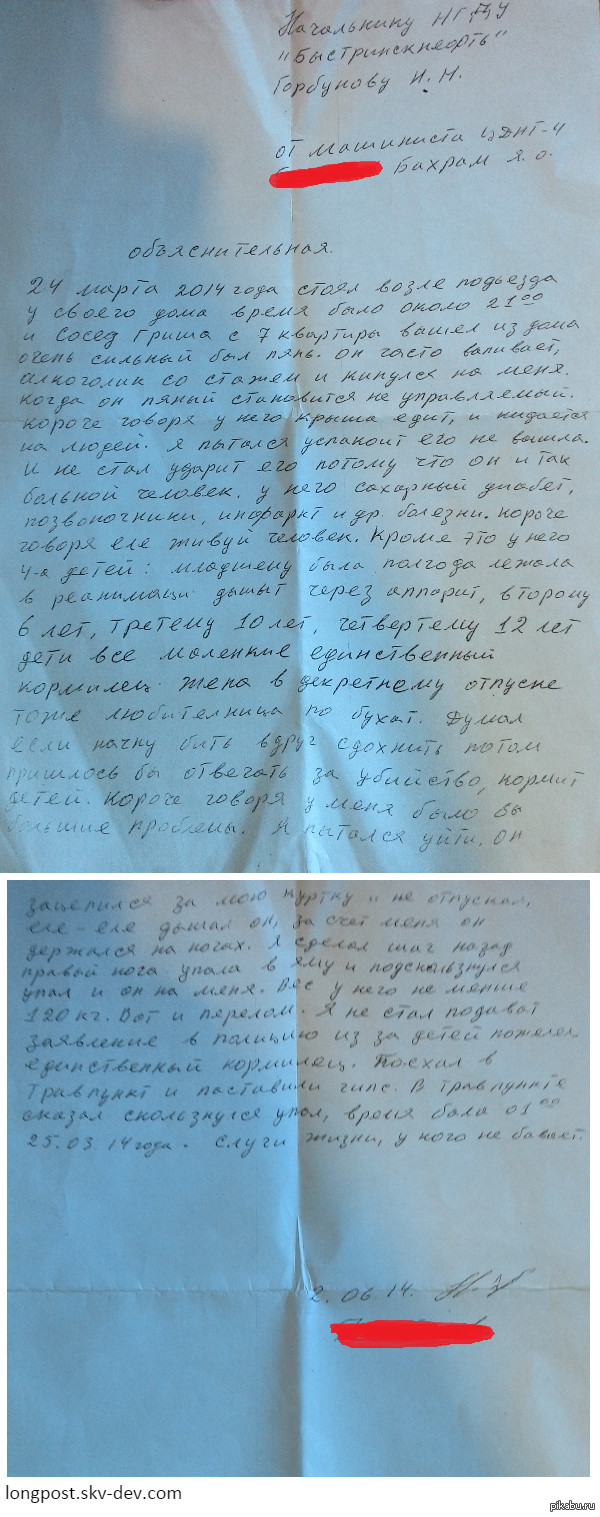 Начальнику НГДУ
"Быстринскнефть"
Горбунову И. Н.
от машиниста ЦДНГ-4
Бахрам Я. о.
объяснительная.
24 марта 2014 года стоял возле подьезда
у своего дома время было около 21 00
и Сосед Гриша с 7 квартиры вашел из дома
очень сильный был пянь. он часто вапивает,
алкоголик со стажем и кинулся на меня.
когда он пяный становится не управляемый.
короче говоря у него крыша едит, и кидается
на людей. я пытался успакоит его не вышла.
и не стал ударит его потому что он и так
больной человек. у него сахарный диабет,
позвоночники, инфаркт и др. болезни. короче
говоря еле живуй человек. Кроме это у него
4-а детей: младшему была полгода лежала
в реанимаци дышыт через аппарит, второму
6 лет, третему 10 лет, четвертему 12 лет
дети все маленкие единственный
кормилец. жена в декретнему отпуске
тоже любителница по бухат. Думал
если начну бить вдруг сдохнить потом
пришлось бы отвечать за убийство, кормит
детей. Короче говоря у меня было бы
большие проблемы. Я пытался уйти, он
зацепился за мою куртку и не отпускал,
еле-еле дышал он, за счет меня он
держался на ногах. Я сделал шаг назад
правый нога упала в яму и подскользнулся
упал и он на меня. Вес у него не менше
120 кг. Вот и перелом. Я не стал подават
заявление в палицию из за детей пожелел
единственный кормилец. Поехал в
Травпункт и паставили гипс. В травпункте
сказал сколзнулся упал, время бала 01 00
25.03.14 года. Слуги жизни, у кого не бавает.
2.06.14.
longpost.skv-dev.com
pikabu.ru